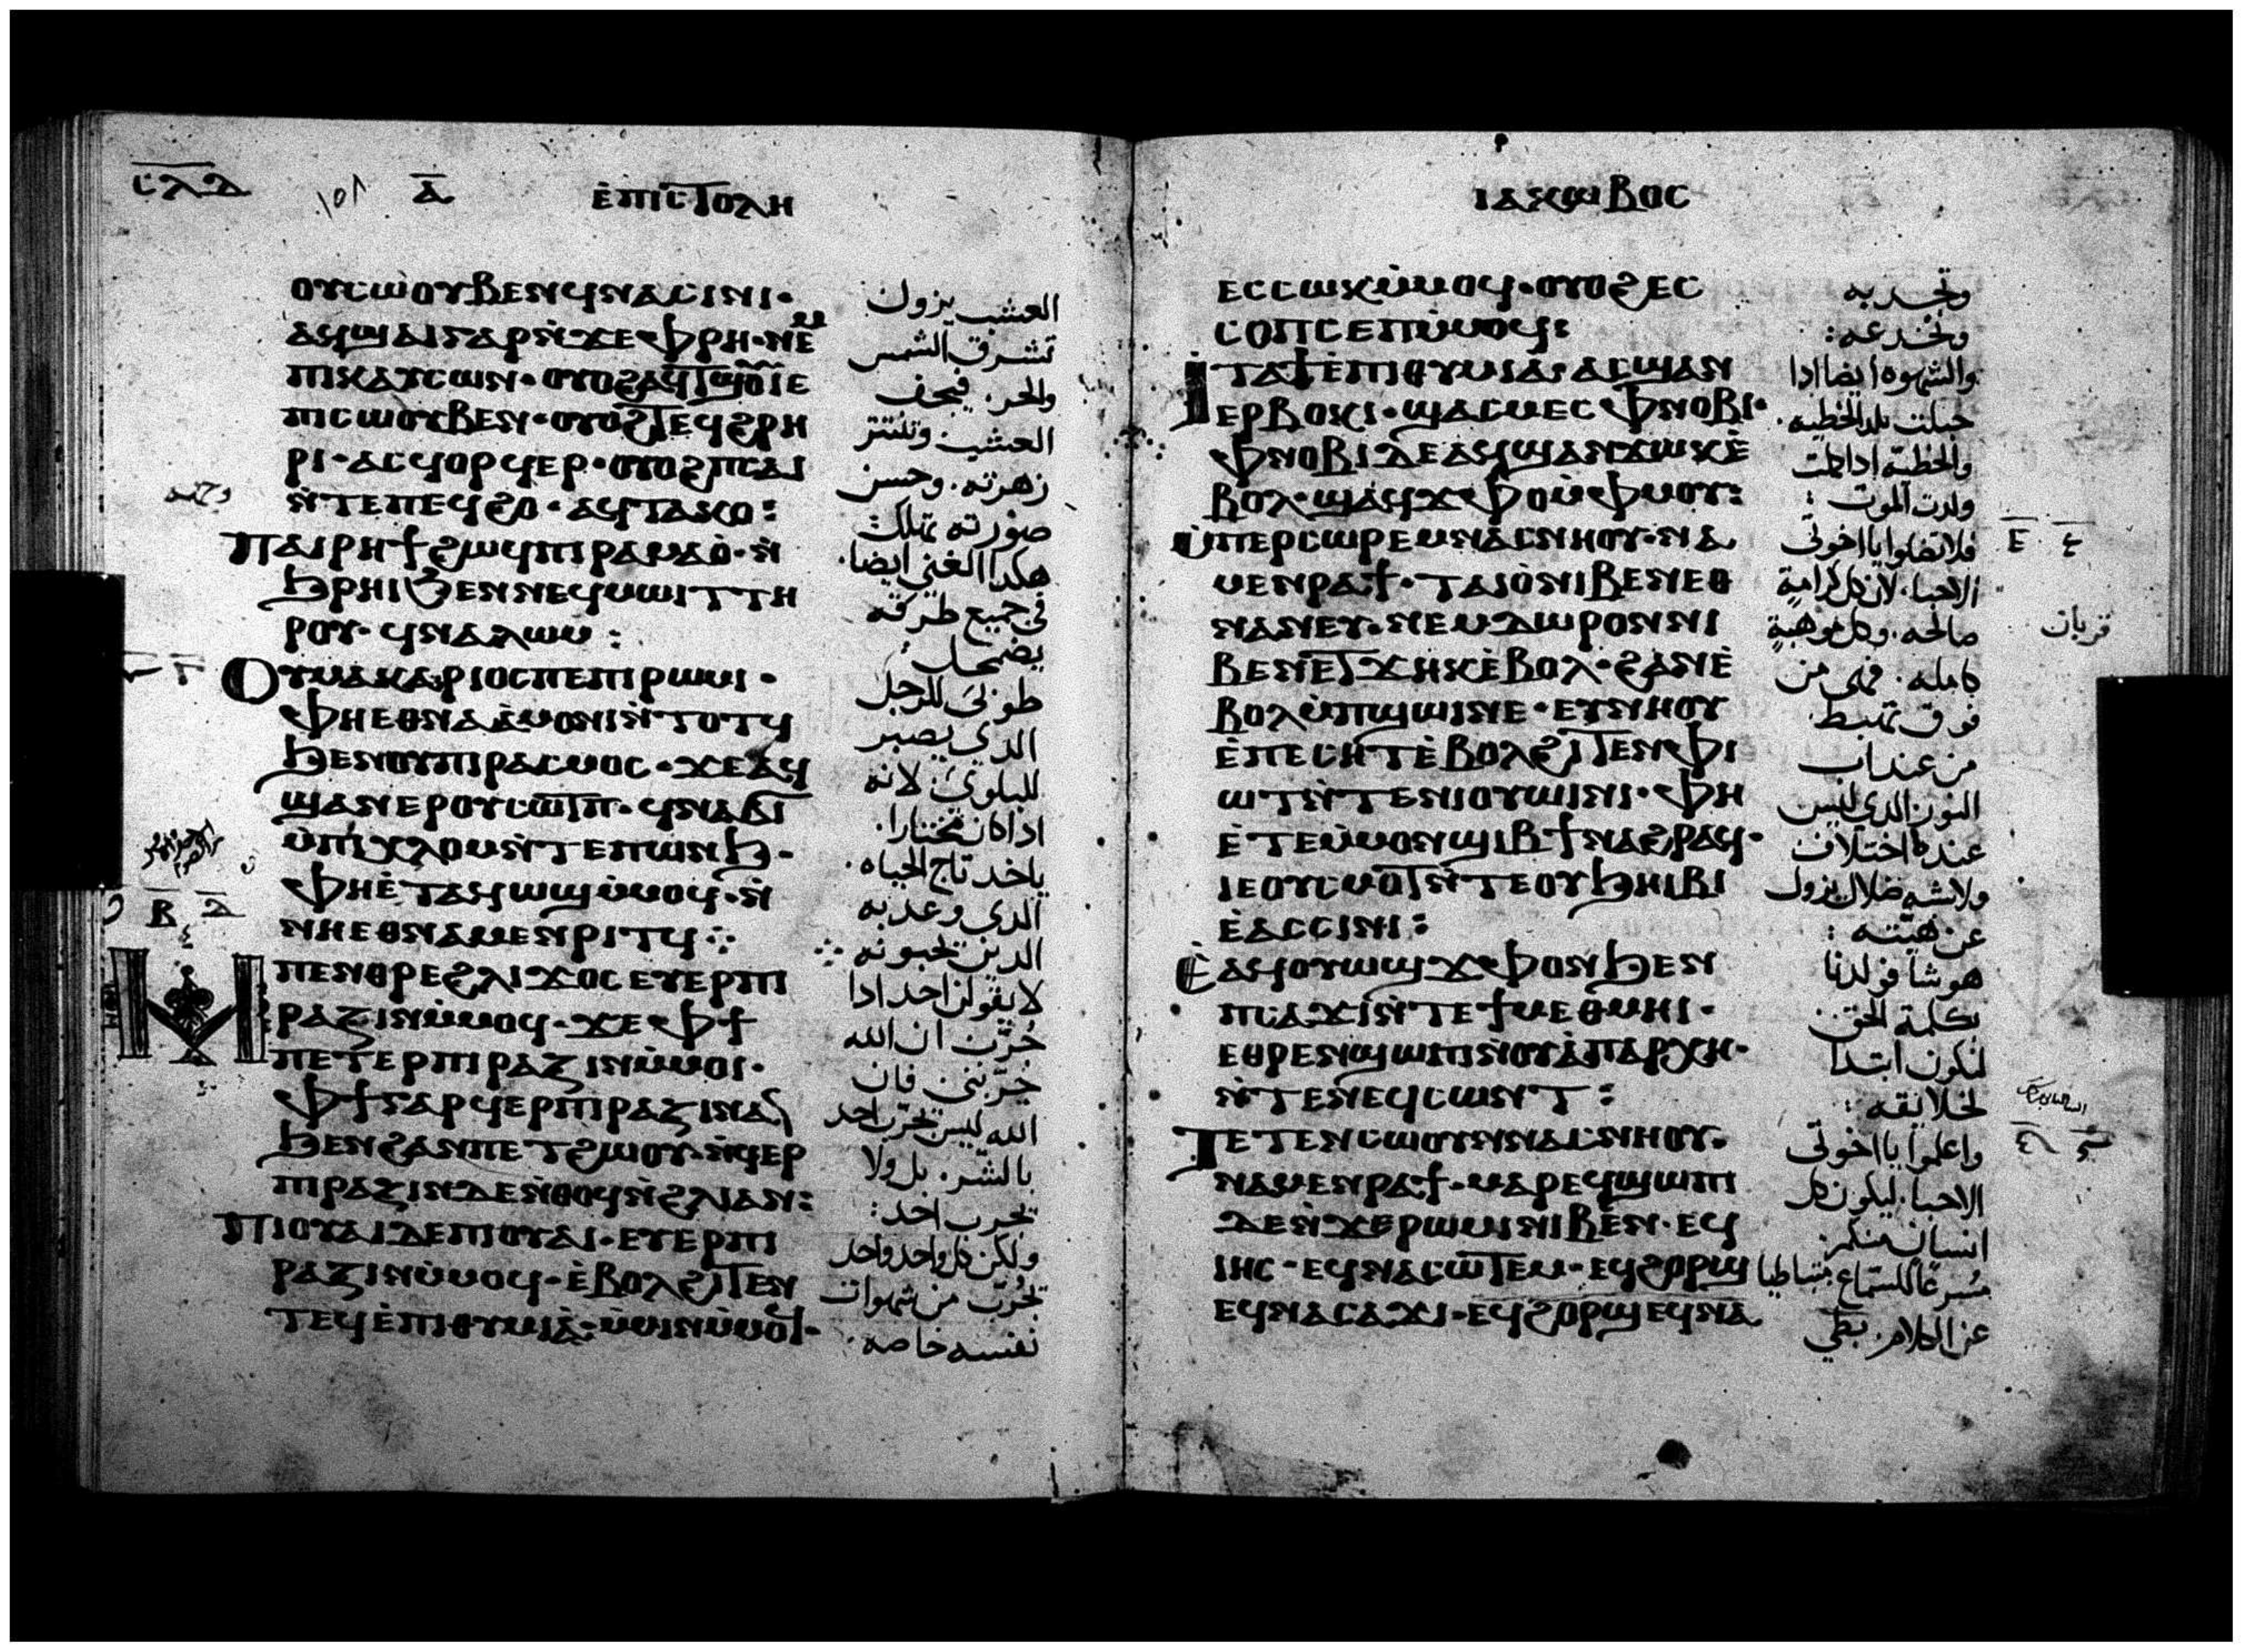 ⲥⲗⲇ ⲁ̅ ⲉ̀ⲡⲓⲥⲧⲟⲗⲏ
ⲟⲩⲥⲱ̀ⲟⲩⲃⲉⲛ ϥⲛⲁⲥⲓⲛⲓ·
ⲁϥϣⲁⲓ ⲅⲁⲣ ⲛ̀ϫⲉ ⲫⲣⲏ· ⲛⲉⲙ
ⲡⲓⲕⲁⲩⲥⲱⲛ· ⲟⲩⲟϩ ⲁϥⲧϣⲟⲩⲓⲉ
ⲡⲓⲥⲱⲟⲩⲃⲉⲛ· ⲟⲩⲟϩ ⲧⲉϥϩⲣⲏ
ⲣⲓ· ⲁⲥϥⲟⲣϥⲉⲣ· ⲟⲩⲟϩ ⲡⲥⲁⲓ
ⲛ̀ⲧⲉ ⲡⲉϥϩⲟ· ⲁϥⲧⲁⲕⲟ:
ⲡⲁⲓⲣⲏϯ ϩⲱϥ ⲡⲓⲣⲁⲙⲁⲟ̀· ⲛ̀
ϧⲣⲏⲓ ϧⲉⲛ ⲛⲉϥⲙⲱⲓⲧ ⲧⲏ
ⲣⲟⲩ· ϥⲛⲁⲗⲱⲙ:
ⲟⲩⲙⲁⲕⲁⲣⲓⲟⲥ ⲡⲉ ⲡⲓⲣⲱⲙⲓ·
ⲫⲏⲉⲑⲛⲁⲁ̀ⲙⲟⲛⲓ ⲛ̀ⲧⲟⲧϥ
ϧⲉⲛ ⲟⲩⲡⲓⲣⲁⲥⲙⲟⲥ· ϫⲉ ⲁϥ
ϣⲁⲛⲉⲣ ⲟⲩⲥⲱⲧⲡ· ϥⲛⲁϭⲓ
ⲙ̀ⲡⲓⲭⲗⲟⲙ ⲛ̀ⲧⲉ ⲡⲱⲛϧ·
ⲫⲏⲉ̀ⲧⲁϥⲱϣ ⲙ̀ⲙⲟϥ· ⲛ̀
ⲛⲏⲉⲑⲛⲁⲙⲉⲛⲣⲓⲧϥ⁘
ⲙⲡⲉⲛⲑⲣⲉ ϩⲗⲓ ϫⲟⲥ ⲉⲩⲉⲣⲡⲓ
ⲣⲁⲍⲓⲛ ⲙ̀ⲙⲟϥ· ϫⲉ ⲫϯ
ⲡⲉⲧⲉⲣⲡⲓⲣⲁⲍⲓⲛ ⲙ̀ⲙⲟⲓ·
ⲫϯ ⲅⲁⲣ ϥⲉⲣⲡⲓⲣⲁⲍⲓⲛ ⲁⲛ
ϧⲉⲛ ϩⲁⲛⲡⲉⲧϩⲱⲟⲩ· ⲛ̀ϥⲉⲣ
ⲡⲓⲣⲁⲍⲓⲛ ⲇⲉ ⲛ̀ⲑⲟϥ ⲛ̀ϩⲗⲓ ⲁⲛ:
ⲡⲓⲟⲩⲁⲓ ⲇⲉ ⲡⲓⲟⲩⲁⲓ· ⲉⲩⲉⲣⲡⲓ
ⲣⲁⲍⲓⲛ ⲙ̀ⲙⲟϥ· ⲉ̀ⲃⲟⲗ ϩⲓⲧⲉⲛ
ⲧⲉϥⲉ̀ⲡⲓⲑⲩⲙⲓⲁ̀· ⲙ̀ⲙⲓⲛ ⲙ̀ⲙⲟϥ·
العشب يزول
تشرق الشمس
والحر. فيجف
العشب وتنتثر
زهرته. وحسن
صورته تهلك
هكدا الغني ايضا.
في جميع طرقه
يضمحل:
طوبى للرجل
الدي يصبر
للبلوى لانه
ادا كان مختارا.
ياخد تاج الحياه.
الدي وعد به
الدين يحبونه
لا يقولن احد ادا
جُرّب ان الله
جرّبني فان
الله ليس يجرب احد
بالشر. بل ولا
يجرب احد:
ولكن كل واحد واحد
يجُرّب من شهوات
نفسه خاصه:
ⲓⲁⲕⲱⲃⲟⲥ
ⲉⲥⲥⲱⲕ ⲙ̀ⲙⲟϥ· ⲟⲩⲟϩ ⲉⲥ
ⲥⲟⲡⲥⲉⲡ ⲙ̀ⲙⲟϥ:
ⲓⲧⲁ ϯⲉ̀ⲡⲓⲑⲩⲙⲓⲁ̀· ⲁⲥϣⲁⲛ
ⲉⲣⲃⲟⲕⲓ· ϣⲁⲥⲙⲉⲥ ⲫⲛⲟⲃⲓ·
ⲫⲛⲟⲃⲓ ⲇⲉ ⲁϥϣⲁⲛϫⲱⲕ ⲉ̀
ⲃⲟⲗ· ϣⲁϥϫⲫⲟ ⲙ̀ⲫⲙⲟⲩ:
ⲙ̀ⲡⲉⲣⲥⲱⲣⲉⲙ ⲛⲁⲥⲛⲏⲟⲩ· ⲛⲁ
ⲙⲉⲛⲣⲁϯ· ⲧⲁⲓⲟ̀ ⲛⲓⲃⲉⲛ ⲉⲑ
ⲛⲁⲛⲉⲩ· ⲛⲉⲙ ⲇⲱⲣⲟⲛ ⲛⲓ
ⲃⲉⲛ ⲉⲧϫⲏⲕ ⲉ̀ⲃⲟⲗ· ϩⲁⲛⲉ̀
ⲃⲟⲗ ⲙ̀ⲡϣⲱⲓ ⲛⲉ· ⲉⲩⲛⲏⲟⲩ
ⲉ̀ⲡⲉⲥⲏⲧ ⲉ̀ⲃⲟⲗ ϩⲓⲧⲉⲛ ⲫⲓ
ⲱⲧ ⲛ̀ⲧⲉ ⲛⲓⲟⲩⲱⲓⲛⲓ· ⲫⲏ
ⲉ̀ⲧⲉ ⲙ̀ⲙⲟⲛ ϣⲓⲃϯ ⲛⲁϩⲣⲁϥ·
ⲓⲉ ⲟⲩⲥⲙⲟⲧ ⲛ̀ⲧⲉ ⲟⲩϧⲏⲓⲃⲓ
ⲉ̀ⲁⲥⲥⲓⲛⲓ:
ⲉ̀ⲁϥⲟⲩⲱϣ ϫⲫⲟⲛ ϧⲉⲛ
ⲡⲥⲁϫⲓ ⲛ̀ⲧⲉ ϯⲙⲉⲑⲙⲏⲓ·
ⲉⲑⲣⲉⲛϣⲱⲡⲓ ⲛ̀ⲟⲩⲁ̀ⲡⲁⲣⲭⲏ·
ⲛ̀ⲧⲉ ⲛⲉϥⲥⲱⲛⲧ:
ⲧⲉⲧⲉⲛⲥⲱⲟⲩⲛ ⲛⲁⲥⲛⲏⲟⲩ·
ⲛⲁⲙⲉⲛⲣⲁϯ· ⲙⲁⲣⲉϥϣⲱⲡⲓ
ⲇⲉ ⲛ̀ϫⲉ ⲣⲱⲙⲓ ⲛⲓⲃⲉⲛ· ⲉϥ
ⲓⲏⲥ· ⲉϥⲛⲁⲥⲱⲧⲉⲙ· ⲉϥϩⲟⲣϣ
ⲉϥⲛⲁⲥⲁϫⲓ· ⲉϥϩⲟⲣϣ ⲉϥⲛⲁ
وتجدبه
وتخدعه:
والشهوه ايضا ادا
حبلت تلد الخطيه.
والخطيه ادا كملت
ولدت الموت:
فلا تضلوا يا اخوتى
الاحبا. لان كل كرامة
صالحه. وكل موهبة
كامله. فهى من
فوق تهبط.
من عند اب
النور الدي ليس
عنده اختلاف
ولا شبه ضلال يزول
عن هيته:
هو شا فولدنا
بكلمة الحق
لنكون ابتدا
لخلايقه:
واعلموا يا اخوتى
الاحبا. ليكون كل
انسان منكم
مسرعا للستماع متباطيا
عن الكلام. بطي
قربان